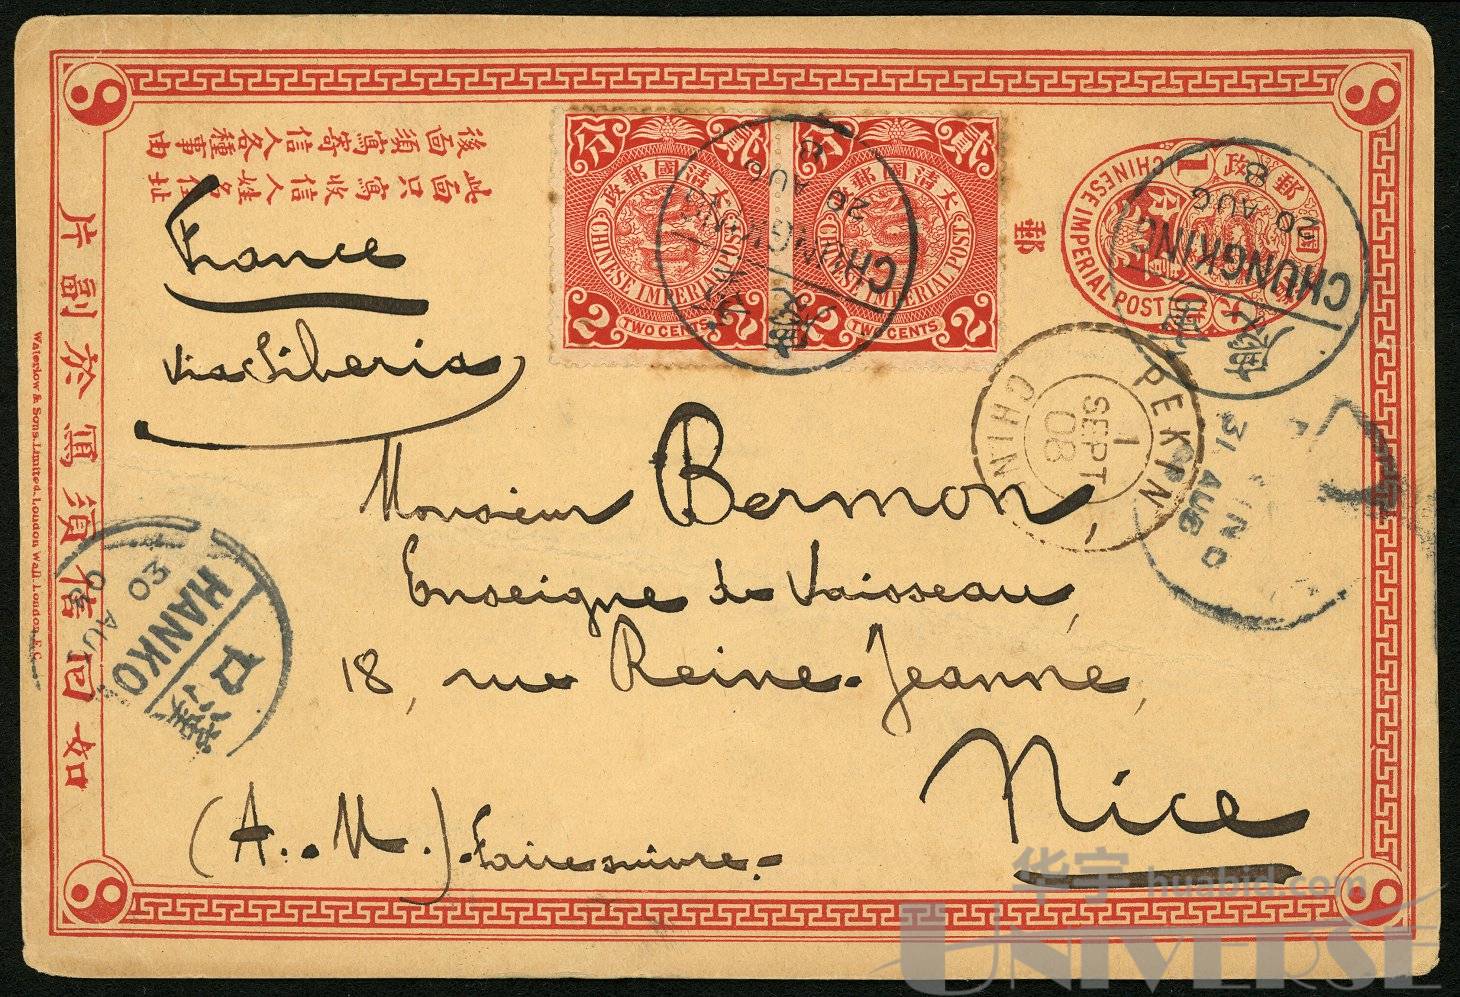 此面只寫收信人姓名住址
後面須寫寄信人各種事由
郵
片副於寫須信回如
Waterlow & Sons Limited, London Wall, London E.C.
大清國郵政
貳
分
CHINESE IMPERIAL POST
2 TWO CENTS 2
大清國郵政
貳
分
CHINESE IMPERIAL POST
2 TWO CENTS 2
CHINESE IMPERIAL POST
1
CHUNGKING
20 AUG
8
重慶
CHUNGKING
20 AUG
8
重慶
France
via Siberia
PEKIN
CHINE
1
SEPT
08
31 AUG
HANKO
30
AUG
08
漢口
Monsieur Bermon,
Enseigne de Vaisseau,
18, rue Reine-Jeanne,
Nice
(A.-M.) - Faire suivre -
华宇 huabid.com
UNIVERSE